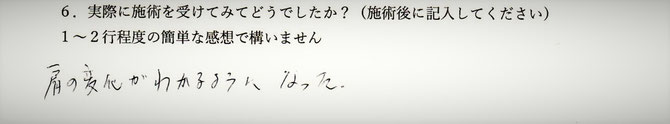 6．実際に施術を受けてみてどうでしたか？（施術後に記入してください）
1～2行程度の簡単な感想で構いません
肩の変化がわかるように なった.